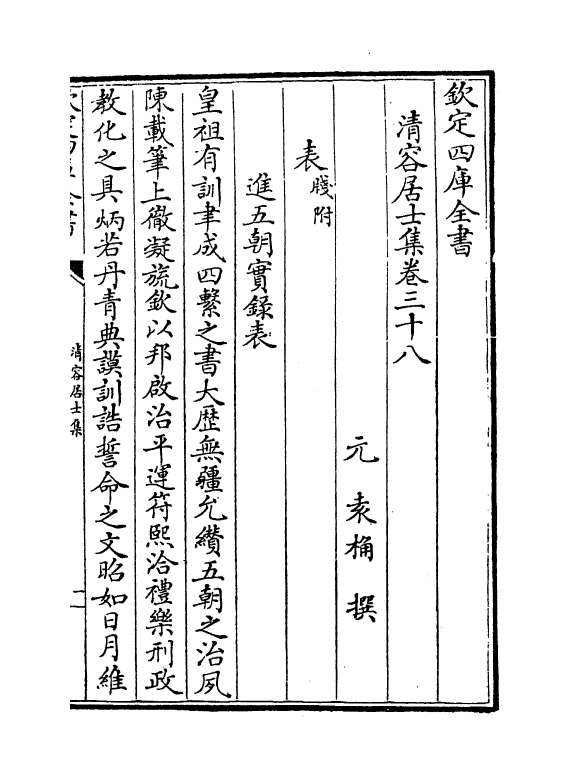 欽定四庫全書
清容居士集卷三十八
元 袁桷 撰
表牋附
進五朝實錄表
皇祖有訓聿成四繫之書大歷無疆允纘五朝之治夙
陳載筆上徹凝旒欽以邦啟治平運符熙洽禮樂刑政
教化之具炳若丹青典謨訓誥誓命之文昭如日月維
欽定四庫全書
清容居士集